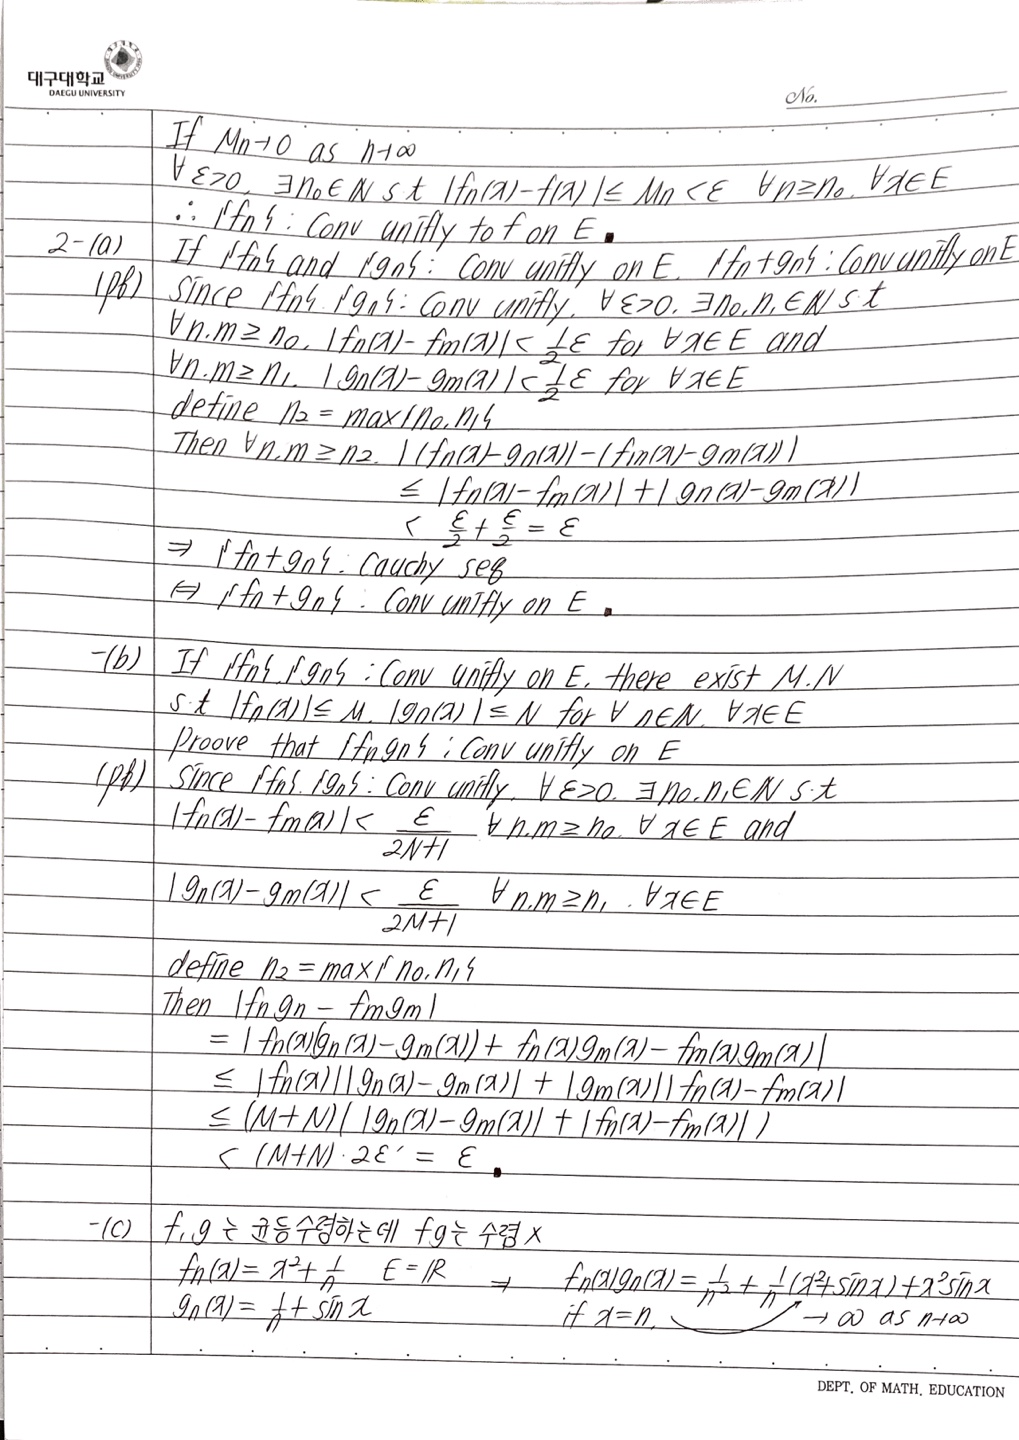 대구대학교
DAEGU UNIVERSITY
No.
If Mn→0 as n→∞
∀ε>0, ∃n₀∈ℕ s.t |fn(x)-f(x)|≤ Mn <ε ∀n≥n₀. ∀x∈E
∴ {fn} : Conv unifly to f on E.
2-(a) If {fn} and {gn} : Conv unifly on E. {fn+gn} : Conv unifly on E
(pf) Since {fn}. {gn} : Conv unifly. ∀ε>0. ∃n₀.n₁∈ℕ s.t
∀n.m≥n₀. |fn(x)-fm(x)|< 1/2 ε for ∀x∈E and
∀n.m≥n₁. |gn(x)-gm(x)|< 1/2 ε for ∀x∈E
define n₂ = max{n₀.n₁}
Then ∀n.m≥n₂. |(fn(x)-gn(x))-(fm(x)-gm(x))|
≤ |fn(x)-fm(x)|+|gn(x)-gm(x)|
< ε/2 + ε/2 = ε
⇒ {fn+gn} : Cauchy seq
⇔ {fn+gn} : Conv unifly on E.
-(b) If {fn}, {gn} : Conv unifly on E, there exist M.N
s.t |fn(x)|≤ M. |gn(x)|≤ N for ∀ n∈N. ∀x∈E
Proove that {fngn} : Conv unifly on E
(pf) Since {fn}. {gn} : Conv unifly. ∀ε>0. ∃n₀.n₁∈ℕ s.t
|fn(x)-fm(x)|< ε/(2N+1) ∀n.m≥n₀. ∀x∈E and
|gn(x)-gm(x)|< ε/(2M+1) ∀n.m≥n₁. ∀x∈E
define n₂ = max{n₀.n₁}
Then |fngn - fmgm|
= |fn(x)(gn(x)-gm(x))+ fn(x)gm(x)-fm(x)gm(x)|
≤ |fn(x)||gn(x)-gm(x)| + |gm(x)||fn(x)-fm(x)|
≤ (M+N)(|gn(x)-gm(x)|+|fn(x)-fm(x)|)
< (M+N)·2ε′ = ε.
-(c) f,g는 균등수렴하는데 fg는 수렴 X
fn(x)= x²+1/n E=ℝ ⇒ fn(x)gn(x)= 1/n² + 1/n(x²+sinx)+x²sinx
gn(x)= 1/n + sinx if x=n, → ∞ as n→∞
DEPT. OF MATH. EDUCATION